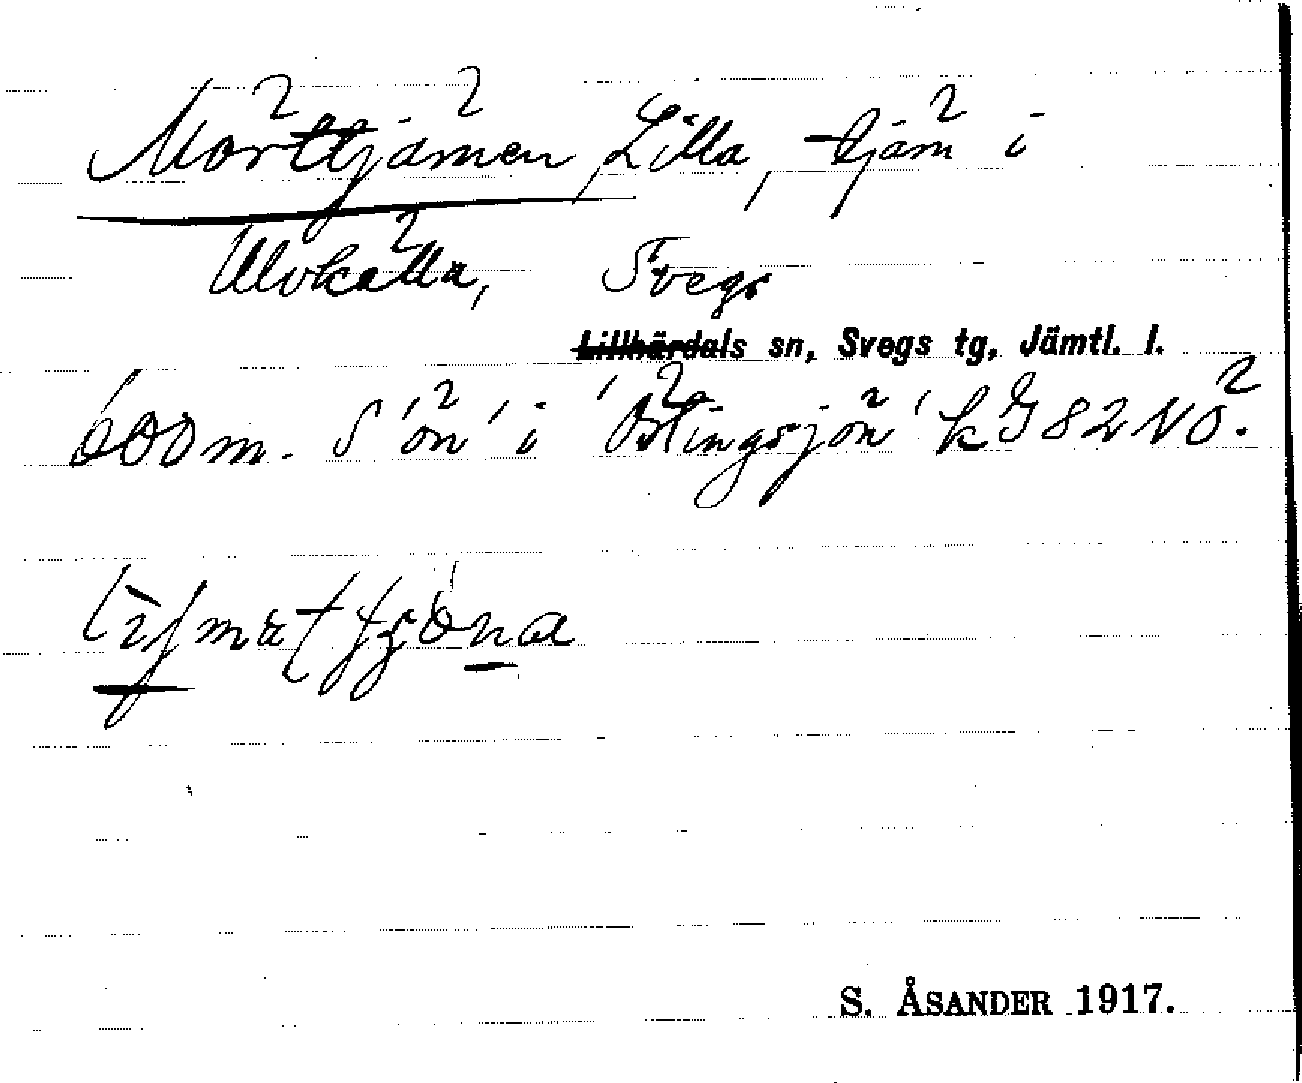 Mörttjärnen, Lilla, tjärn i
Ulvkälla, Svegs
Lillhärdals sn, Svegs tg, Jämtl. l.
600 m. S 'ön' i 'Örlingsjön' k G 82 NO.
S. ÅSANDER 1917.